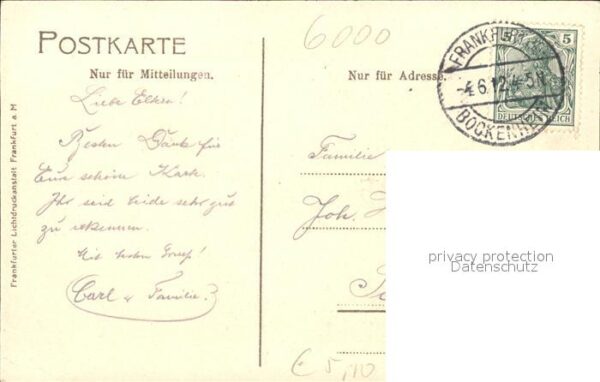 POSTKARTE
Nur für Mitteilungen.
Liebe Eltern!
Besten Dank für
Eure schöne Karte.
Ihr seid beide sehr gut
zu erkennen.
Mit besten Gruss!
Carl & Familie.
Frankfurter Lichtdruckanstalt Frankfurt a. M
6000
Nur für Adresse.
FRANKFURT
-4.6.12.4-5N
BOCKENHEIM
5
5
DEUTSCHES REICH
Familie
Joh.
privacy protection
Datenschutz
€ 5,10